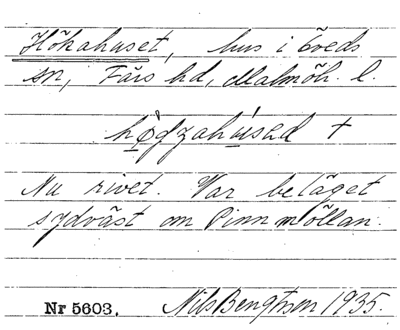 Hökahuset, hus i Öveds
sn, Färs hd, Malmöh. l.
högzahúsed +
Nu rivet. Var beläget
sydväst om Pinnmöllan.
Nr 5603. Nils Bengtsson 1935.